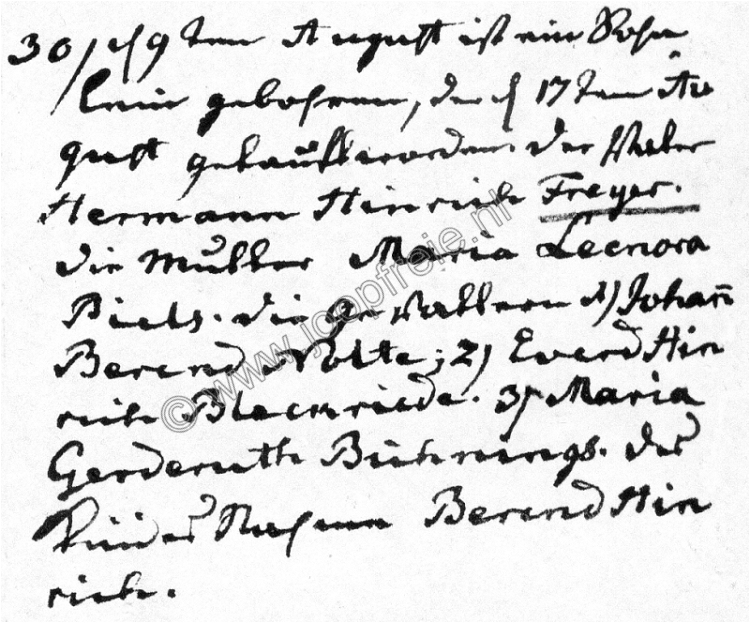 30, d 9 ten August ist ein Sohn
lein gebohren, den d 17 ten Au
gust getauft worden. der Vater
Hermann Hinrich Freyer.
die Mutter Maria Leenora
Biels. die gevattern 1) Johan̄
Berend Nolte; 2) Everd Hin
rich Bleckriede. 3) Maria
Gerderuth Bührings. des
Kindes Nahmen Berend Hin
rich.
© www.joopfreije.nl